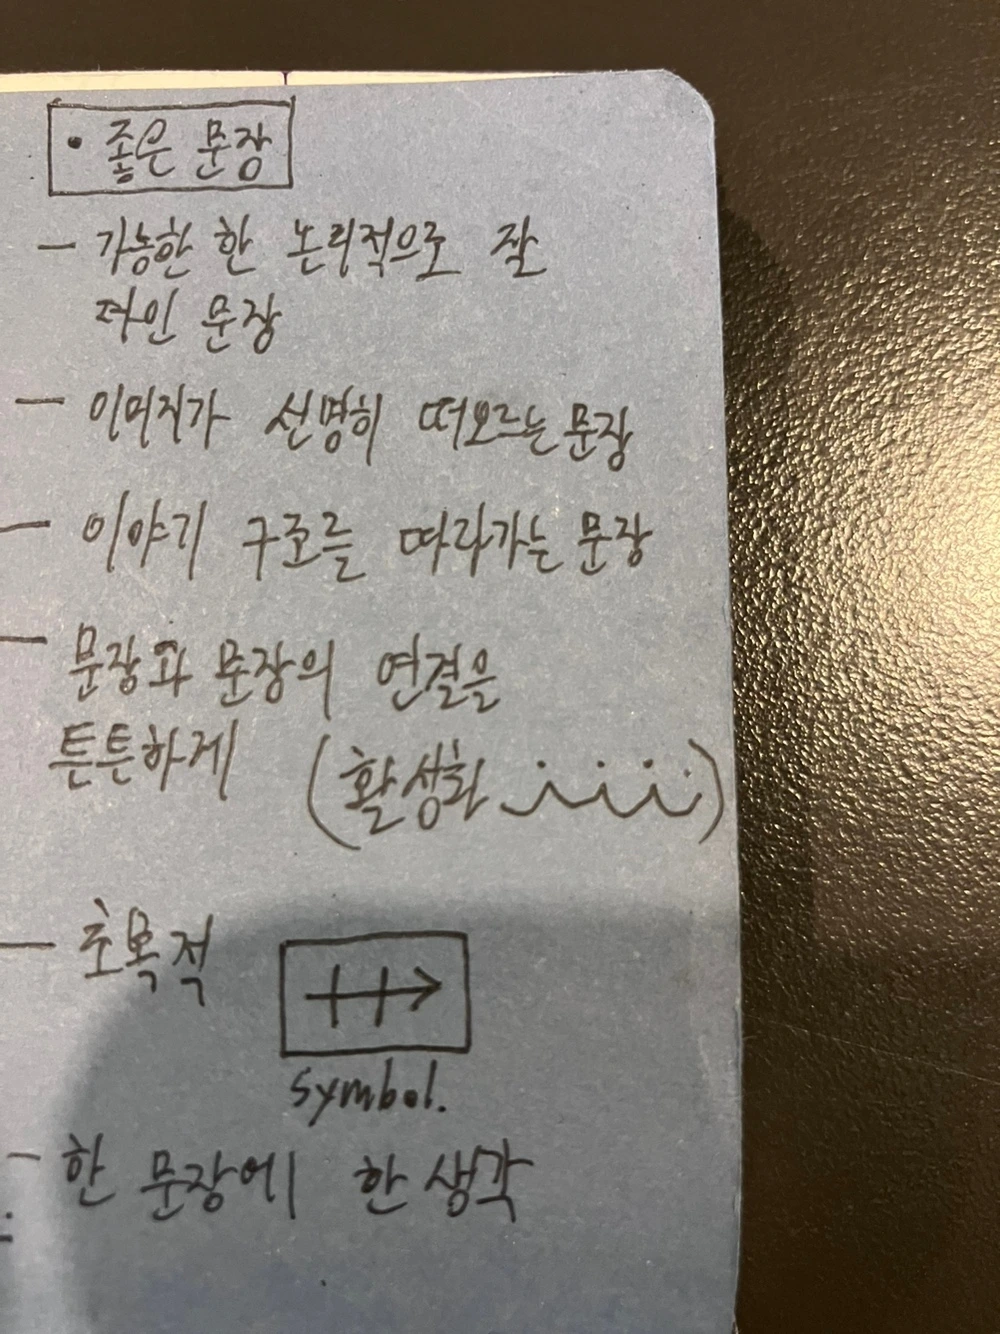 • 좋은 문장
- 가능한 한 논리적으로 잘
짜인 문장
- 이미지가 선명히 떠오르는 문장
- 이야기 구조를 따라가는 문장
- 문장과 문장의 연결을
튼튼하게 (활성화
- 초목적
symbol.
- 한 문장에 한 생각